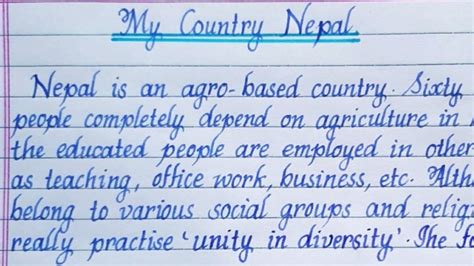 My Country Nepal.
Nepal is an agro-based country. Sixty
people completely depend on agriculture in
the educated people are employed in other
as teaching, office work, business, etc. Alth
belong to various social groups and relig
really practise 'unity in diversity'. The fo